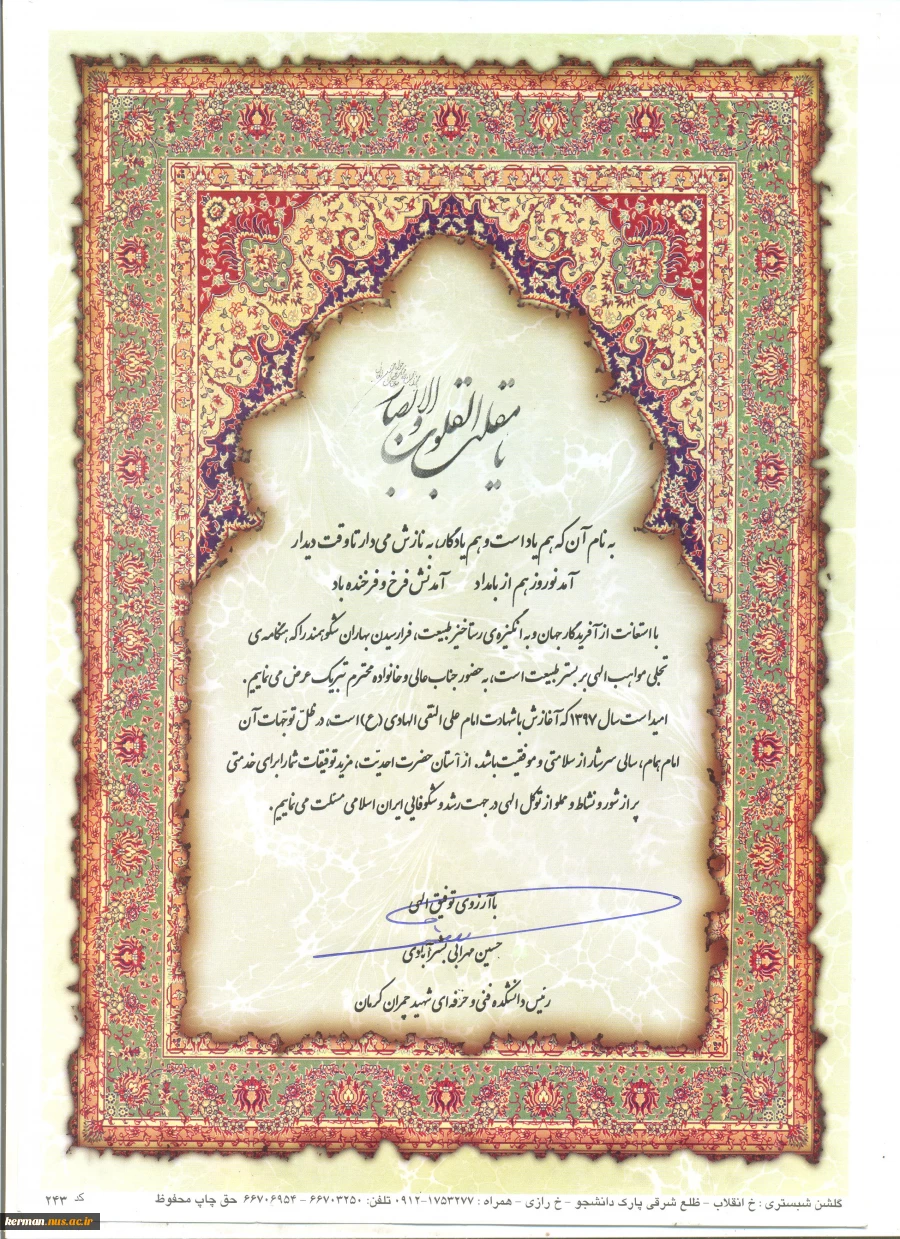 یا مقلب القلوب والابصار
به نام آن که هم یاد است و هم یادگار، به نازش می دار تا وقت دیدار
آمد نوروز هم از بامداد آمدنش فرخ و فرخنده باد
با استعانت از آفریدگار جهان و به انگیزه‌ی رستاخیز طبیعت، فرارسیدن بهاران شکوهمند را که هنگامه ی
تجلی مواهب الهی بر بستر طبیعت است، به حضور جناب عالی و خانواده محترم تبریک عرض می نماییم.
امید است سال ۱۳۹۷ که آغازش با شهادت امام علی النقی الهادی (ع) است، در ظلّ توجهات آن
امام همام، سالی سرشار از سلامتی و موفقیت باشد. از آستان حضرت احدیت، مزید توفیقات شما را برای خدمتی
پر از شور و نشاط و مملو از توکل الهی در جهت رشد و شکوفایی ایران اسلامی مسئلت می نماییم.
با آرزوی توفیق الهی
حسین مهرابی بشرآبادی
رئیس دانشکده فنی و حرفه ای شهید چمران کرمان
گلشن شبستری : خ انقلاب - ظلع شرقی پارک دانشجو - خ رازی - همراه : ۱۷۵۳۲۷۷-۰۹۱۲ تلفن: ۶۶۷۰۳۲۵۰ - ۶۶۷۰۶۹۵۴ حق چاپ محفوظ کد ۲۴۳
kerman.nus.ac.ir